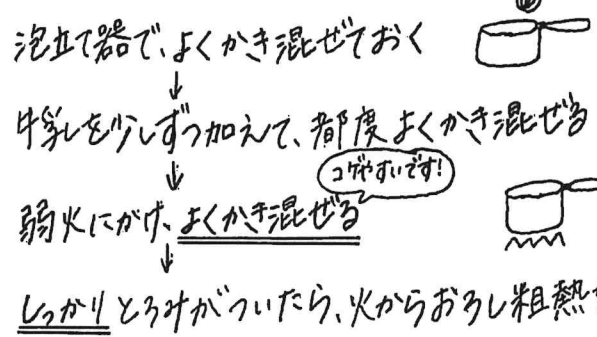 泡立て器で、よくかき混ぜておく
↓
牛乳を少しずつ加えて、都度よくかき混ぜる
↓
コゲやすいです!
弱火にかけ、よくかき混ぜる
↓
しっかりとろみがついたら、火からおろし粗熱